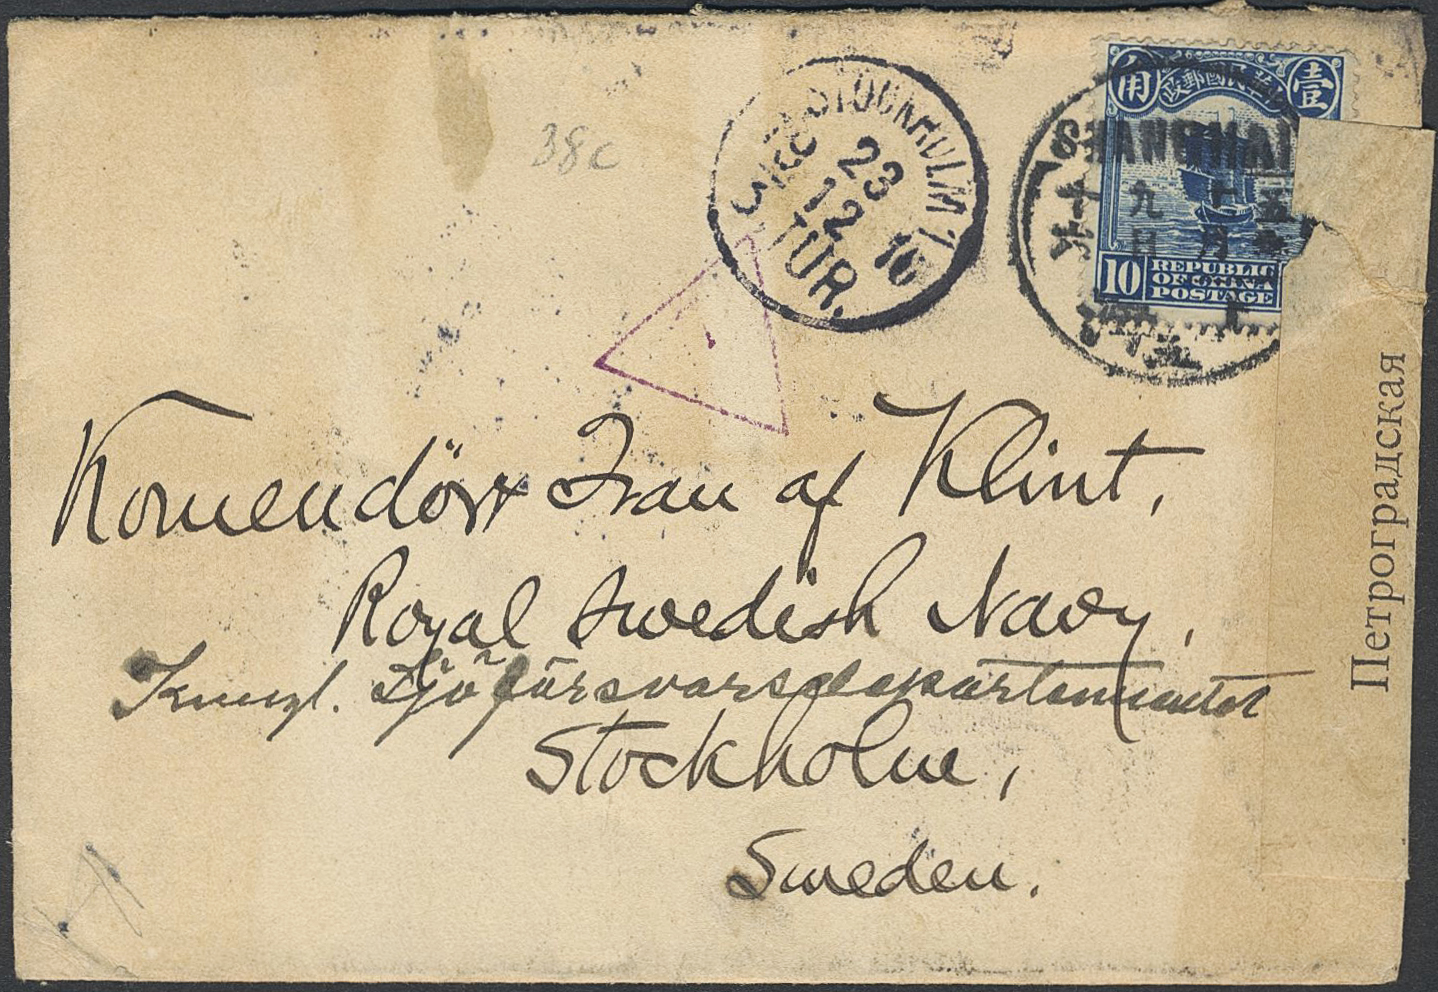 38c
STOCKHOLM 1
23
12 16
TUR.
角 壹
中華民國郵政
SHANGHAI
十 九 十 五
日 月 年
上海
10 REPUBLIC
OF CHINA
POSTAGE
Петроградская
Komendör Fran af Klint,
Royal Swedish Navy,
Kungl. Sjöförsvarsdepartementet
Stockholm,
Sweden.